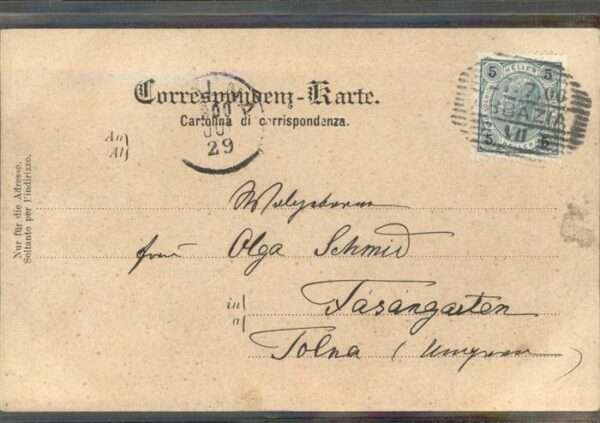 Correspondenz-Karte.
Cartolina di corrispondenza.
5 HELLER 5
7 00
BBAZIA
VII
5 5
00
29
An
All
Nur für die Adresse.
Soltanto per l'indirizzo.
Wolgeboren
Frau Olga Schmid
in
a
Fásángarten
Tolna (Ungarn